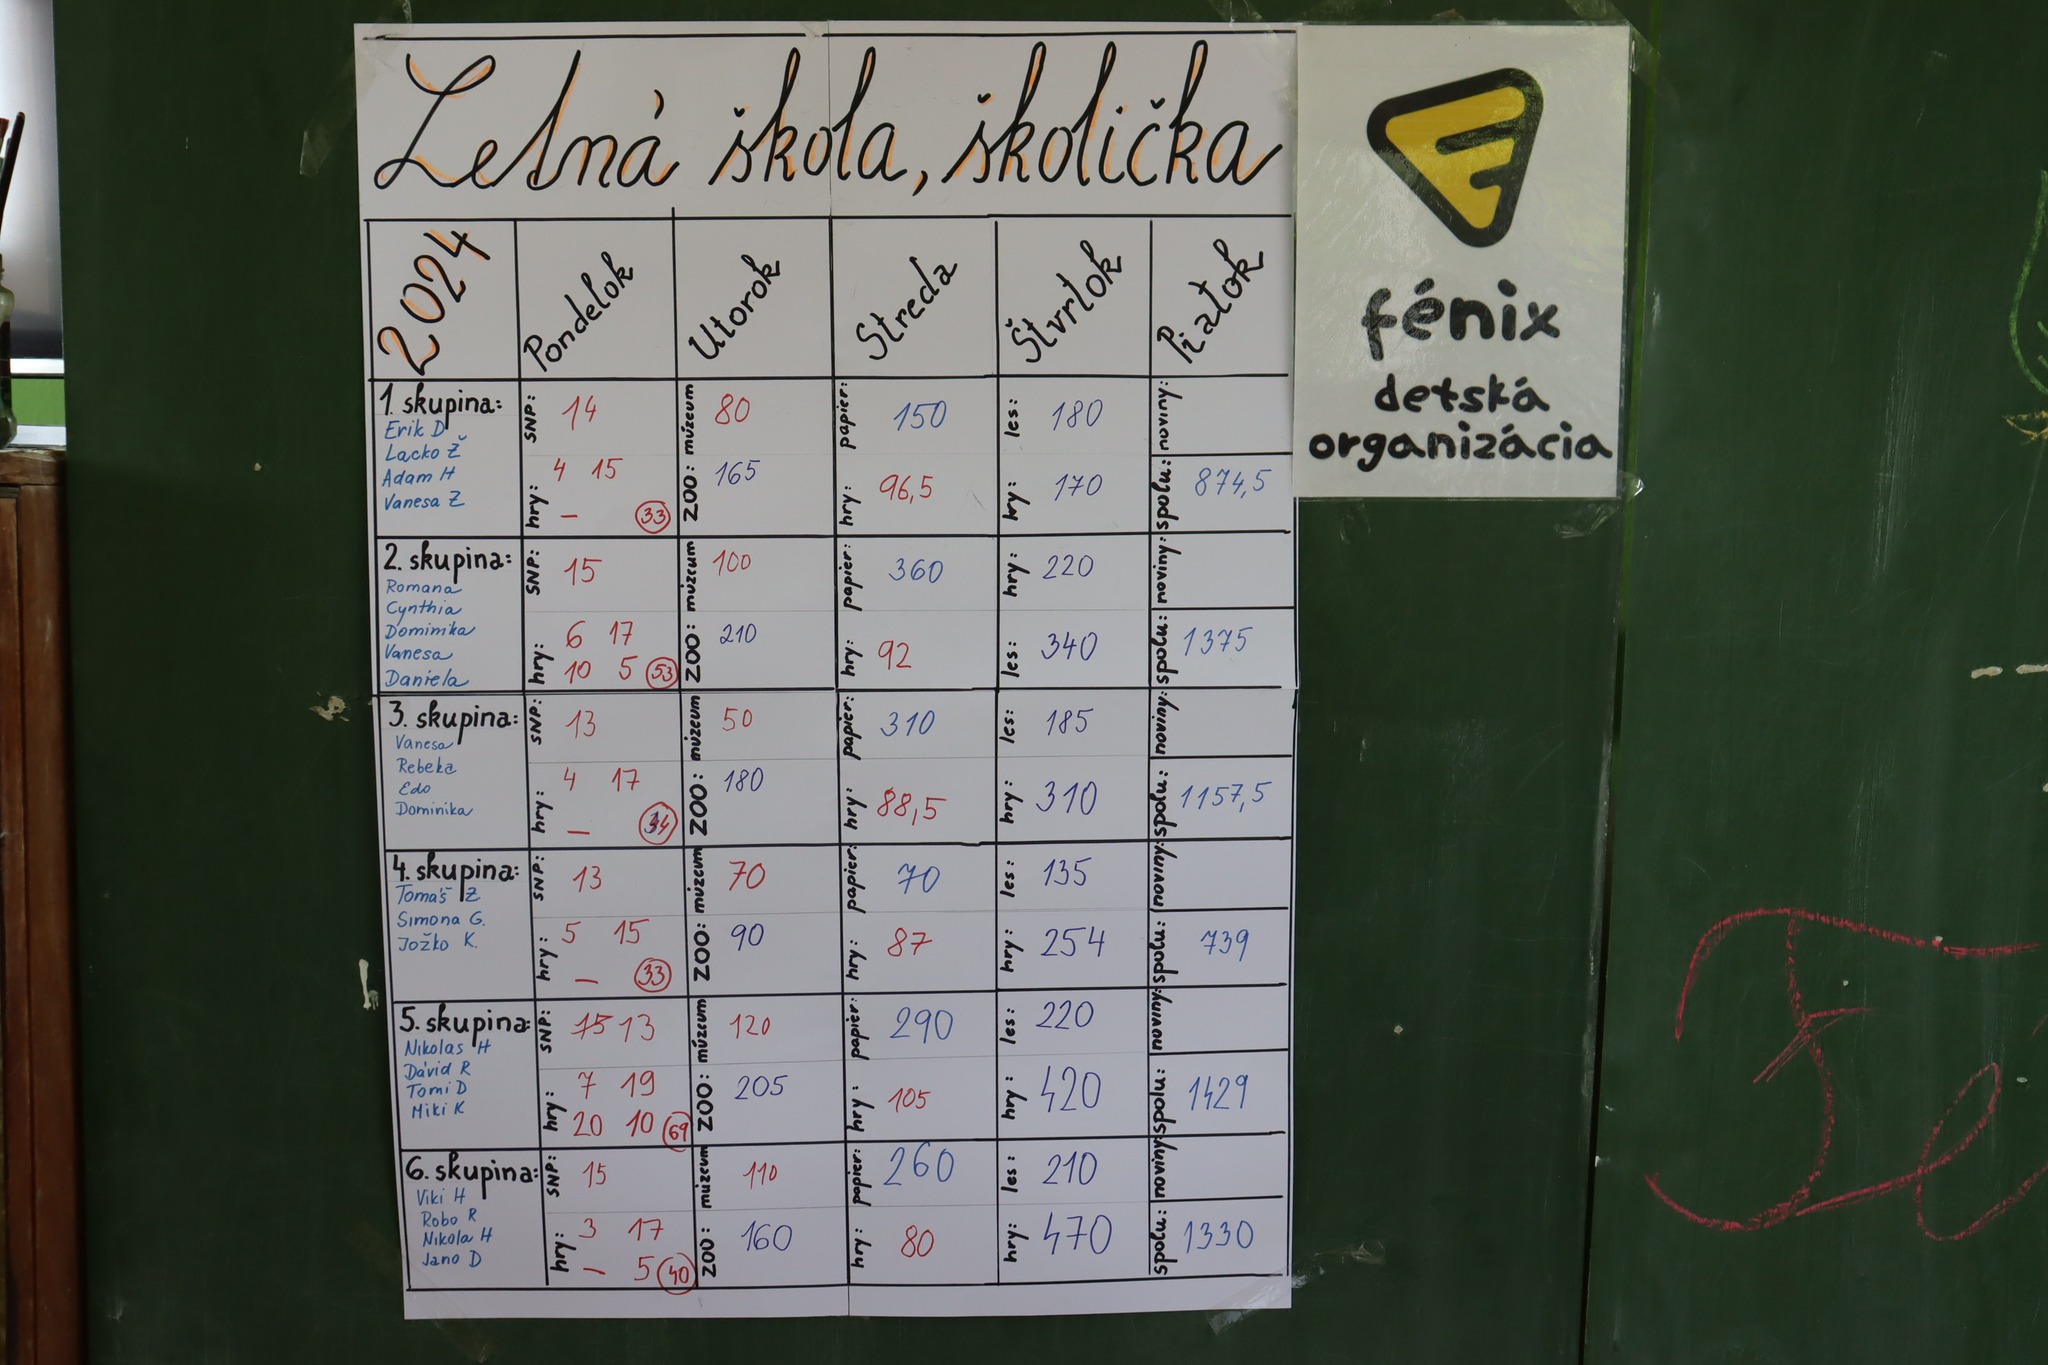 Letná škola, školička
2024 Pondelok Utorok Streda Štvrtok Piatok
1. skupina:
Erik D
Lacko Ž
Adam H
Vanesa Z
SNP: 14
hry: 4 15
– 33
múzeum 80
ZOO: 165
papier: 150
hry: 96,5
les: 180
hry: 170
noviny:
spolu: 874,5
2. skupina:
Romana
Cynthia
Dominika
Vanesa
Daniela
SNP: 15
hry: 6 17
10 5 53
múzeum 100
ZOO: 210
papier: 360
hry: 92
hry: 220
les: 340
noviny:
spolu: 1375
3. skupina:
Vanesa
Rebeka
Edo
Dominika
SNP: 13
hry: 4 17
– 34
múzeum 50
ZOO: 180
papier: 310
hry: 88,5
les: 185
hry: 310
noviny:
spolu: 1157,5
4. skupina:
Tomáš Z
Simona G.
Jožko K.
SNP: 13
hry: 5 15
– 33
múzeum 70
ZOO: 90
papier: 70
hry: 87
les: 135
hry: 254
noviny:
spolu: 739
5. skupina:
Nikolas H
Dávid R
Tomi D
Miki K
SNP: 15 13
hry: 7 19
20 10 69
múzeum 120
ZOO: 205
papier: 290
hry: 105
les: 220
hry: 420
noviny:
spolu: 1429
6. skupina:
Viki H
Robo R
Nikola H
Jano D
SNP: 15
hry: 3 17
– 5 40
múzeum 110
ZOO: 160
papier: 260
hry: 80
les: 210
hry: 470
noviny:
spolu: 1330
fénix
detská
organizácia